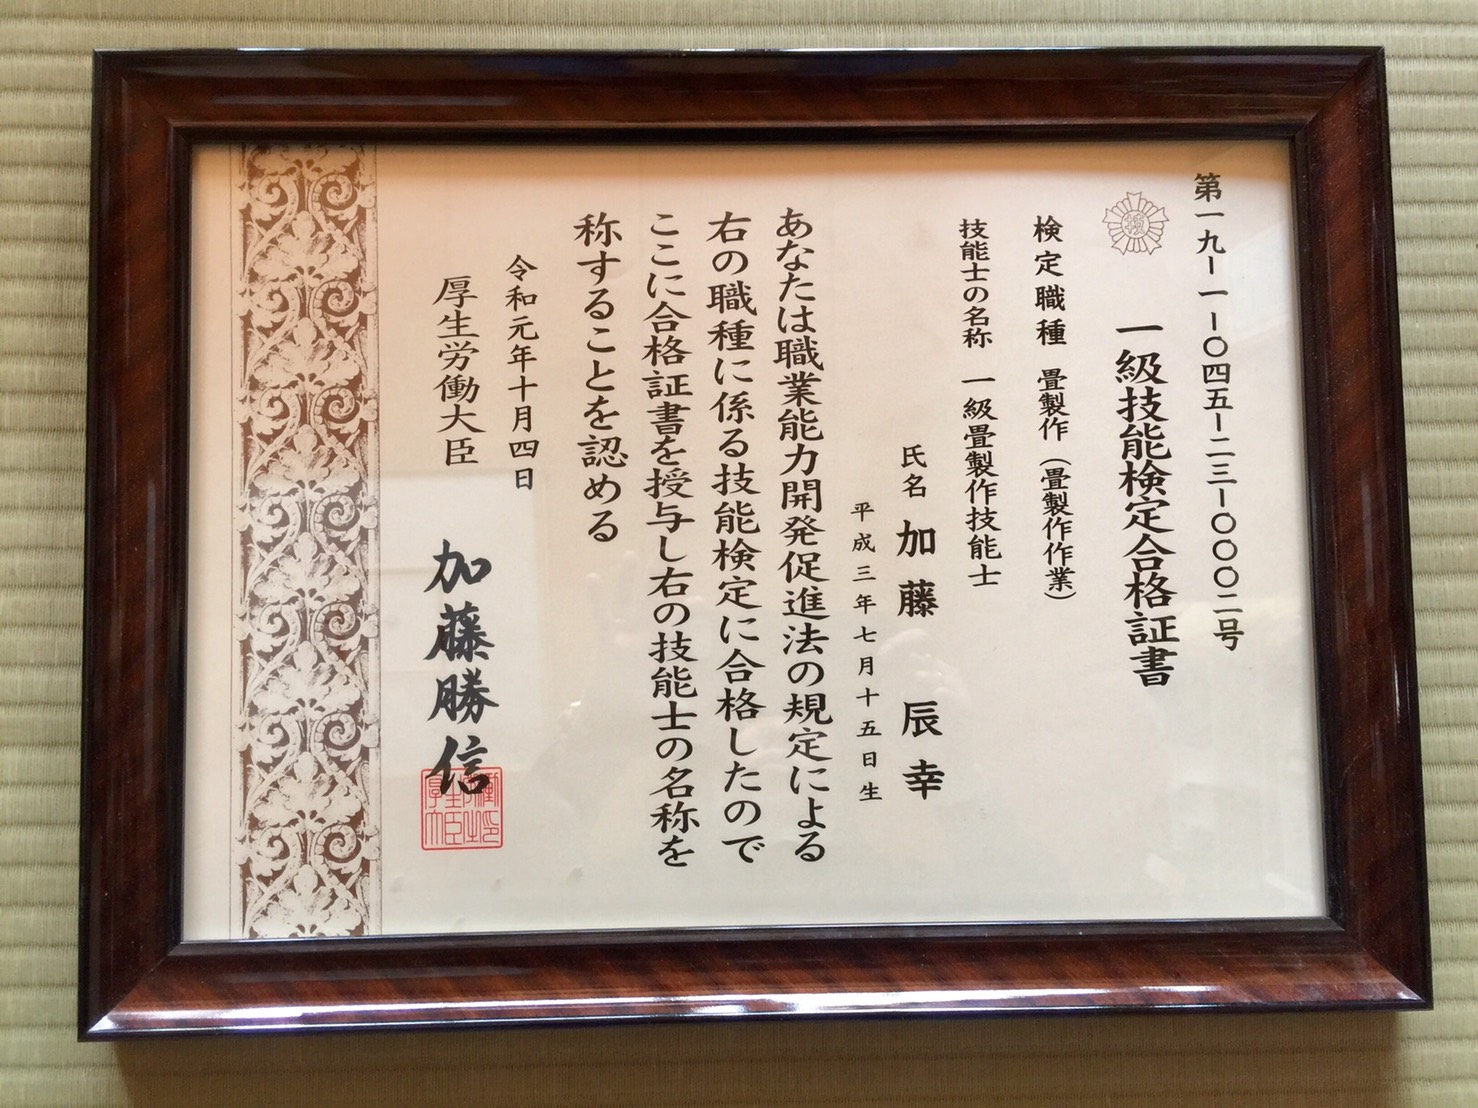 第一九ー一ー〇四五ー二三ー〇〇〇二号
技
一級技能検定合格証書
検定職種 畳製作（畳製作作業）
技能士の名称 一級畳製作技能士
氏名 加藤 辰幸
平成三年七月十五日生
あなたは職業能力開発促進法の規定による
右の職種に係る技能検定に合格したので
ここに合格証書を授与し右の技能士の名称を
称することを認める
令和元年十月四日
厚生労働大臣 加藤勝信